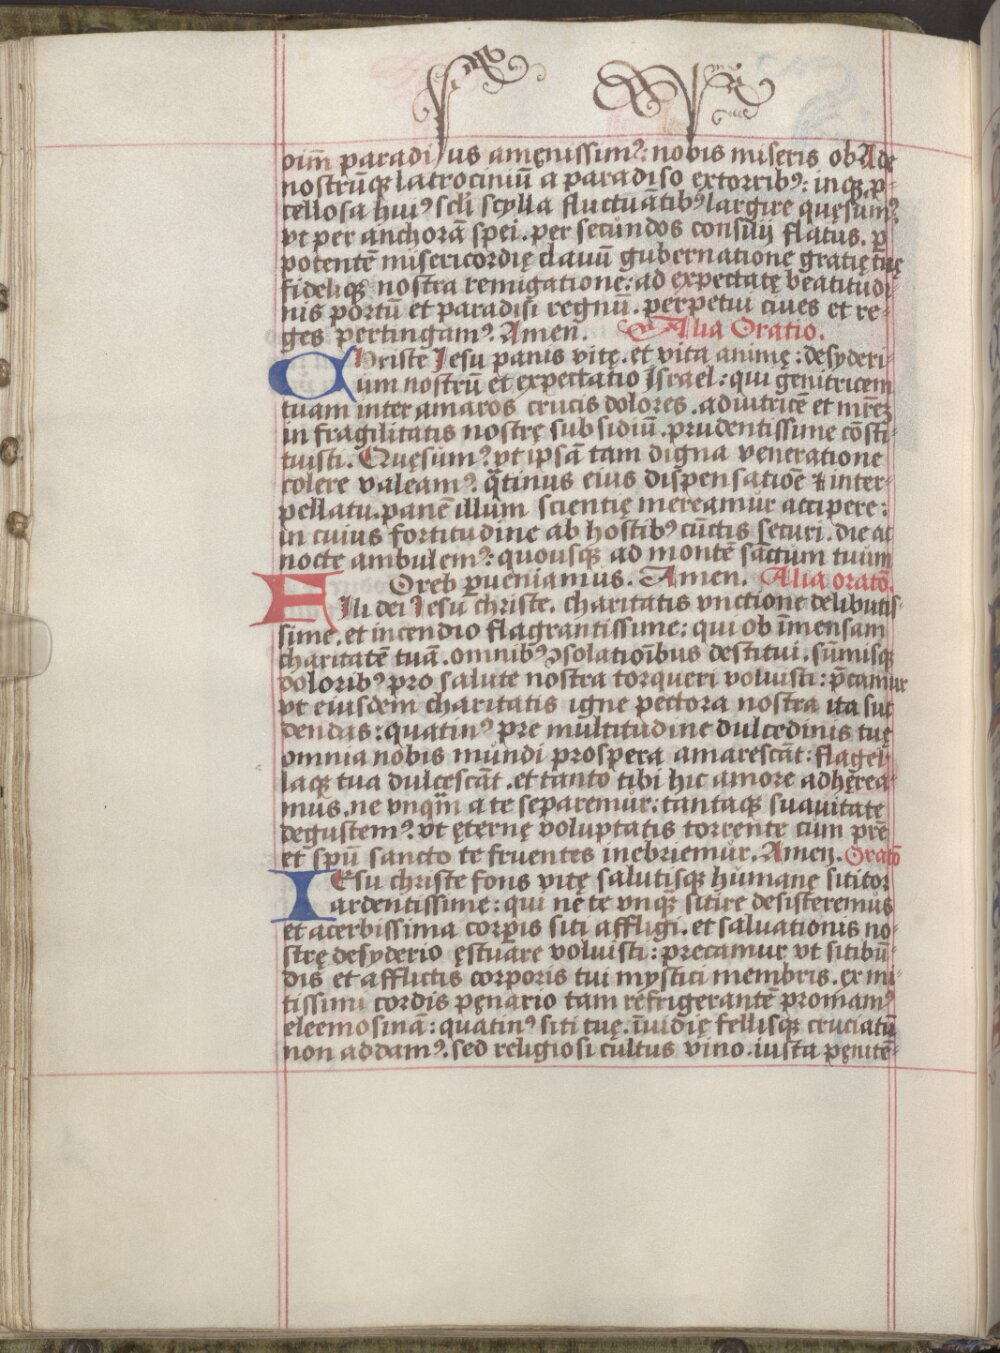 oim̄ paradisus amęnissimꝰ: nobis miseris ob Ade
nostrūqꝫ latrociniū a paradiso extorribꝰ: inqꝫ p-
cellosa huiꝰ scłi scylla fluctuātibꝰ largire quęsumꝰ.
vt per anchorā spei. per secundos consilij flatus. ꝑ
potentē misericordię clauū gubernatione gratię tuę
fideliqꝫ nostra remigatione: ad expectatę beatitudi-
nis portū et paradisi regnū. perpetui ciues et re-
ges pertingamꝰ. Amen. Alia Oratio.
CHriste Jesu panis vitę. et vita animę: desyderi-
um nostrū et expectatio Israel: qui genitricem
tuam inter amaros crucis dolores. adiutricē et mr̄eꝫ
in fragilitatis nostrę subsidiū. prudentissime cōsti-
tuisti. Quęsumꝰ vt ipsā tam digna veneratione
colere valeamꝰ. q̄tinus eius dispensatiōe & inter-
pellatu. panē illum scientię mereamur accipere:
in cuius fortitudine ab hostibꝰ cūctis securi. die ac
nocte ambulemꝰ: quousqꝫ ad montē sāctum tuum
Oreb ꝑueniamus. Amen. Alia oratō.
FIli dei Jesu christe. charitatis vnctione delibutis-
sime. et incendio flagrantissime: qui ob īmensam
charitatē tuā. omnibꝰ ꝯsolatiōibus destitui. sūmisqꝫ
doloribꝰ pro salute nostra torqueri voluisti: p̄camur
vt eiusdem charitatis igne pectora nostra ita suc
dendas: quatinꝰ pre multitudine dulcedinis tuę
omnia nobis mundi prospera amarescāt: flagel-
laqꝫ tua dulcescāt. et tanto tibi hic amore adhęrea-
mus. ne vnqm̄ a te separemur: tantaqꝫ suauitate
degustemꝰ. vt ęternę voluptatis torrente cum prē
et spū sancto te fruentes inebriemur. Amen. Oratō
IEsu christe fons vitę salutisqꝫ humanę sititor
ardentissime: qui ne te vnqꝫ sitire desisteremus
et acerbissima corꝑis siti affligi. et saluationis no-
strę desyderio ęstuare voluisti: precamur vt sitibū-
dis et afflictis corporis tui mystici membris. ex mi-
tissimi cordis pęnario tam refrigerantē promamꝰ
eleemosinā: quatinꝰ siti tuę. īuidię fellisqꝫ cruciatū
non addamꝰ. sed religiosi cultus vino. iusta pęnitē-